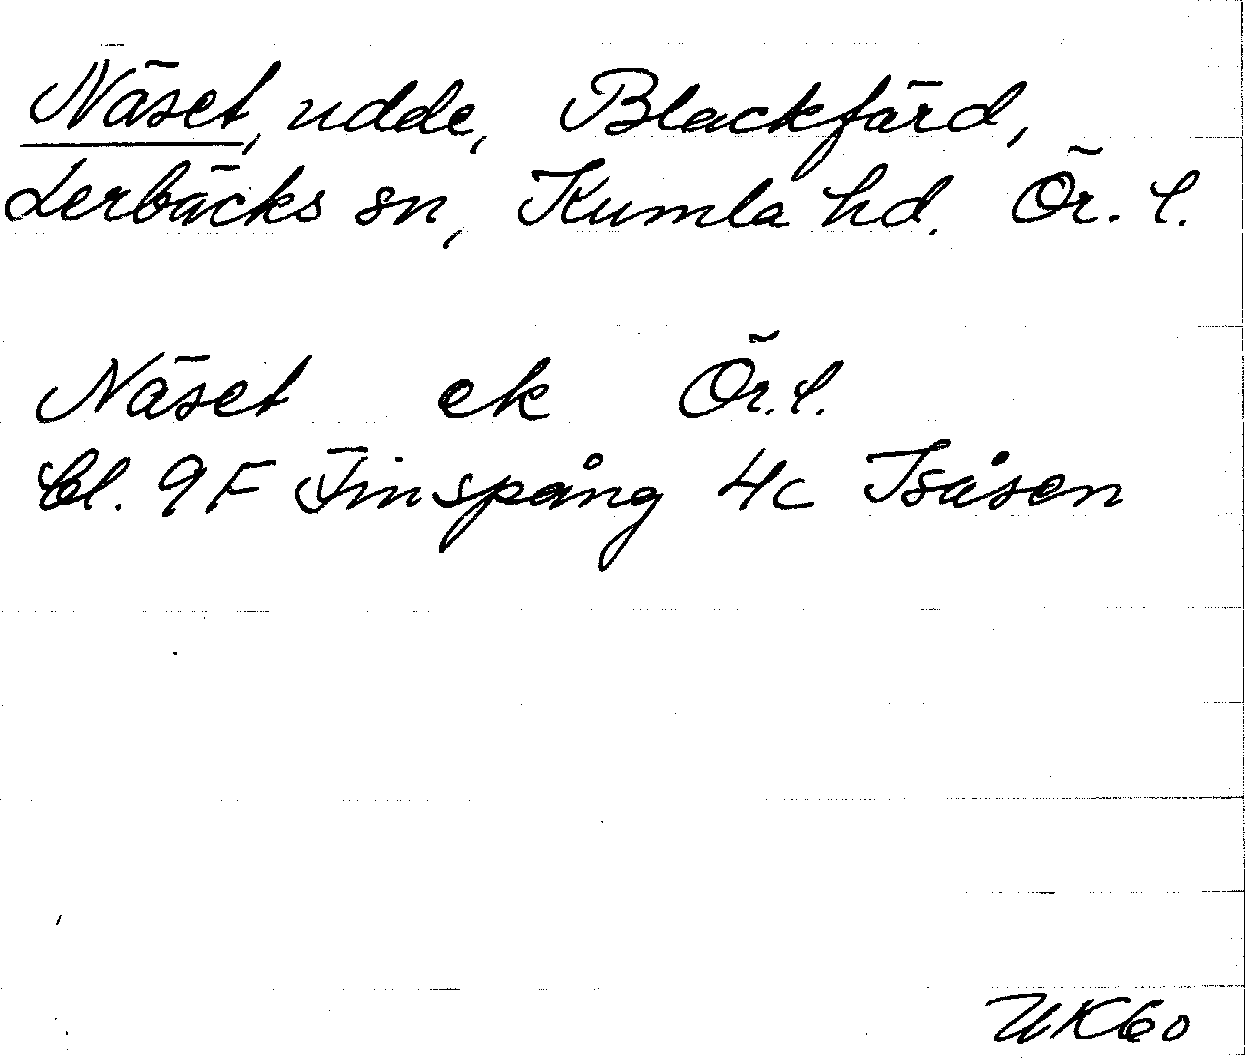 Näset, udde, Blackfärd,
Lerbäcks sn, Kumla hd. Ör. l.
Näset ek Ör. l.
bl. 9F Finspång 4c Isåsen
UK60